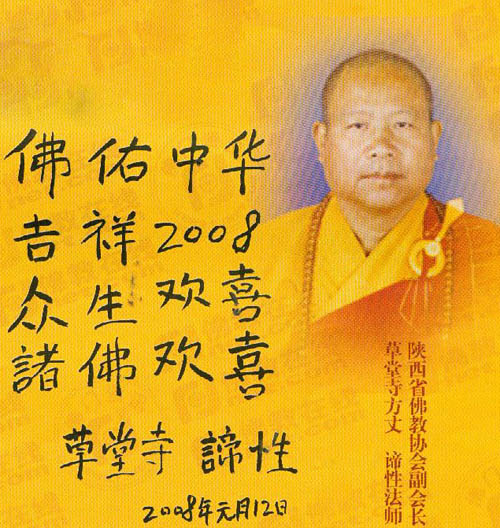 佛佑中华
吉祥2008
众生欢喜
諸佛欢喜
草堂寺 諦性
2008年元月12日
陕西省佛教协会副会长
草堂寺方丈 谛性法师